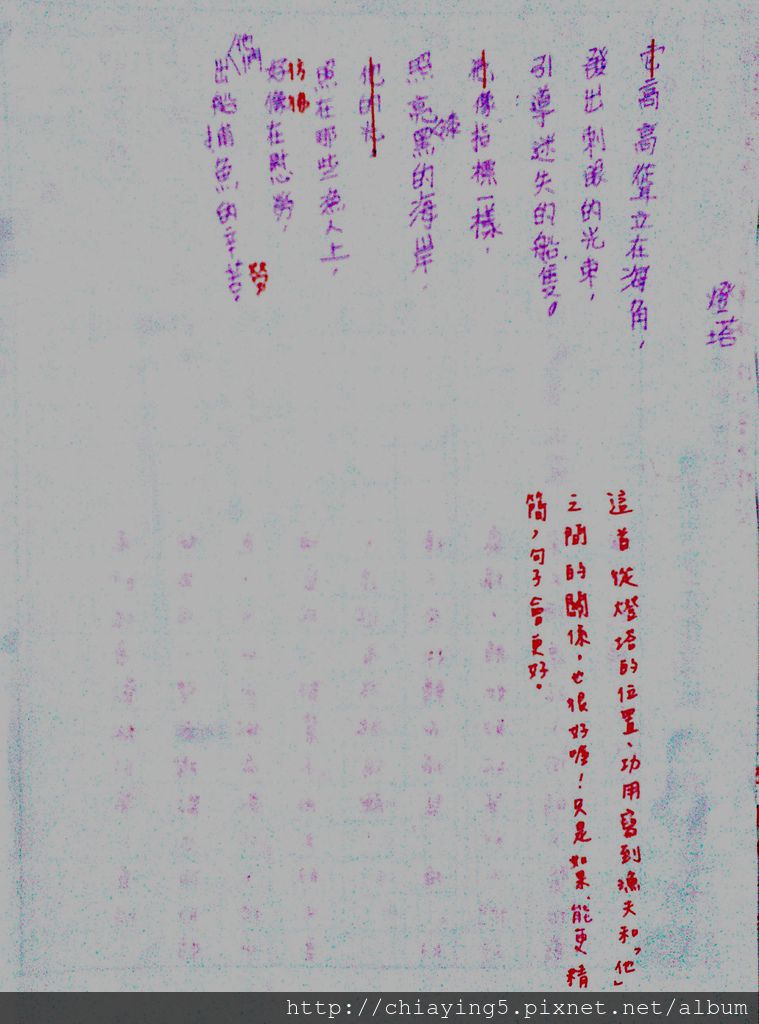 燈塔
它高高聳立在海角，
發出刺眼的光束，
引導迷失的船隻。
像指標一樣，
照亮黑的海岸，
他的光
照在那些漁人上，
好像在慰勞，
彷彿
他們
出船捕魚的辛苦。
勞
這首從燈塔的位置、功用寫到漁夫和「他」
之間的關係，也很好喔！只是如果能更精
簡，句子會更好。
http://chiaying5.pixnet.net/album